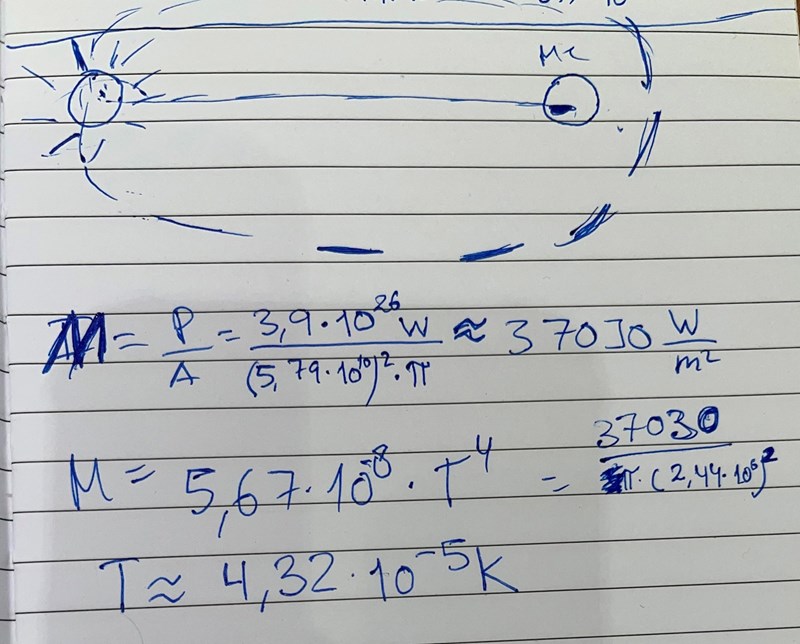 MC
M = P/A = 3,9·10²⁶ W / (5,79·10¹⁰)²·π ≈ 37030 W/m²
M = 5,67·10⁻⁸ · T⁴ = 37030 / π·(2,44·10⁶)²
T ≈ 4,32·10⁻⁵ K